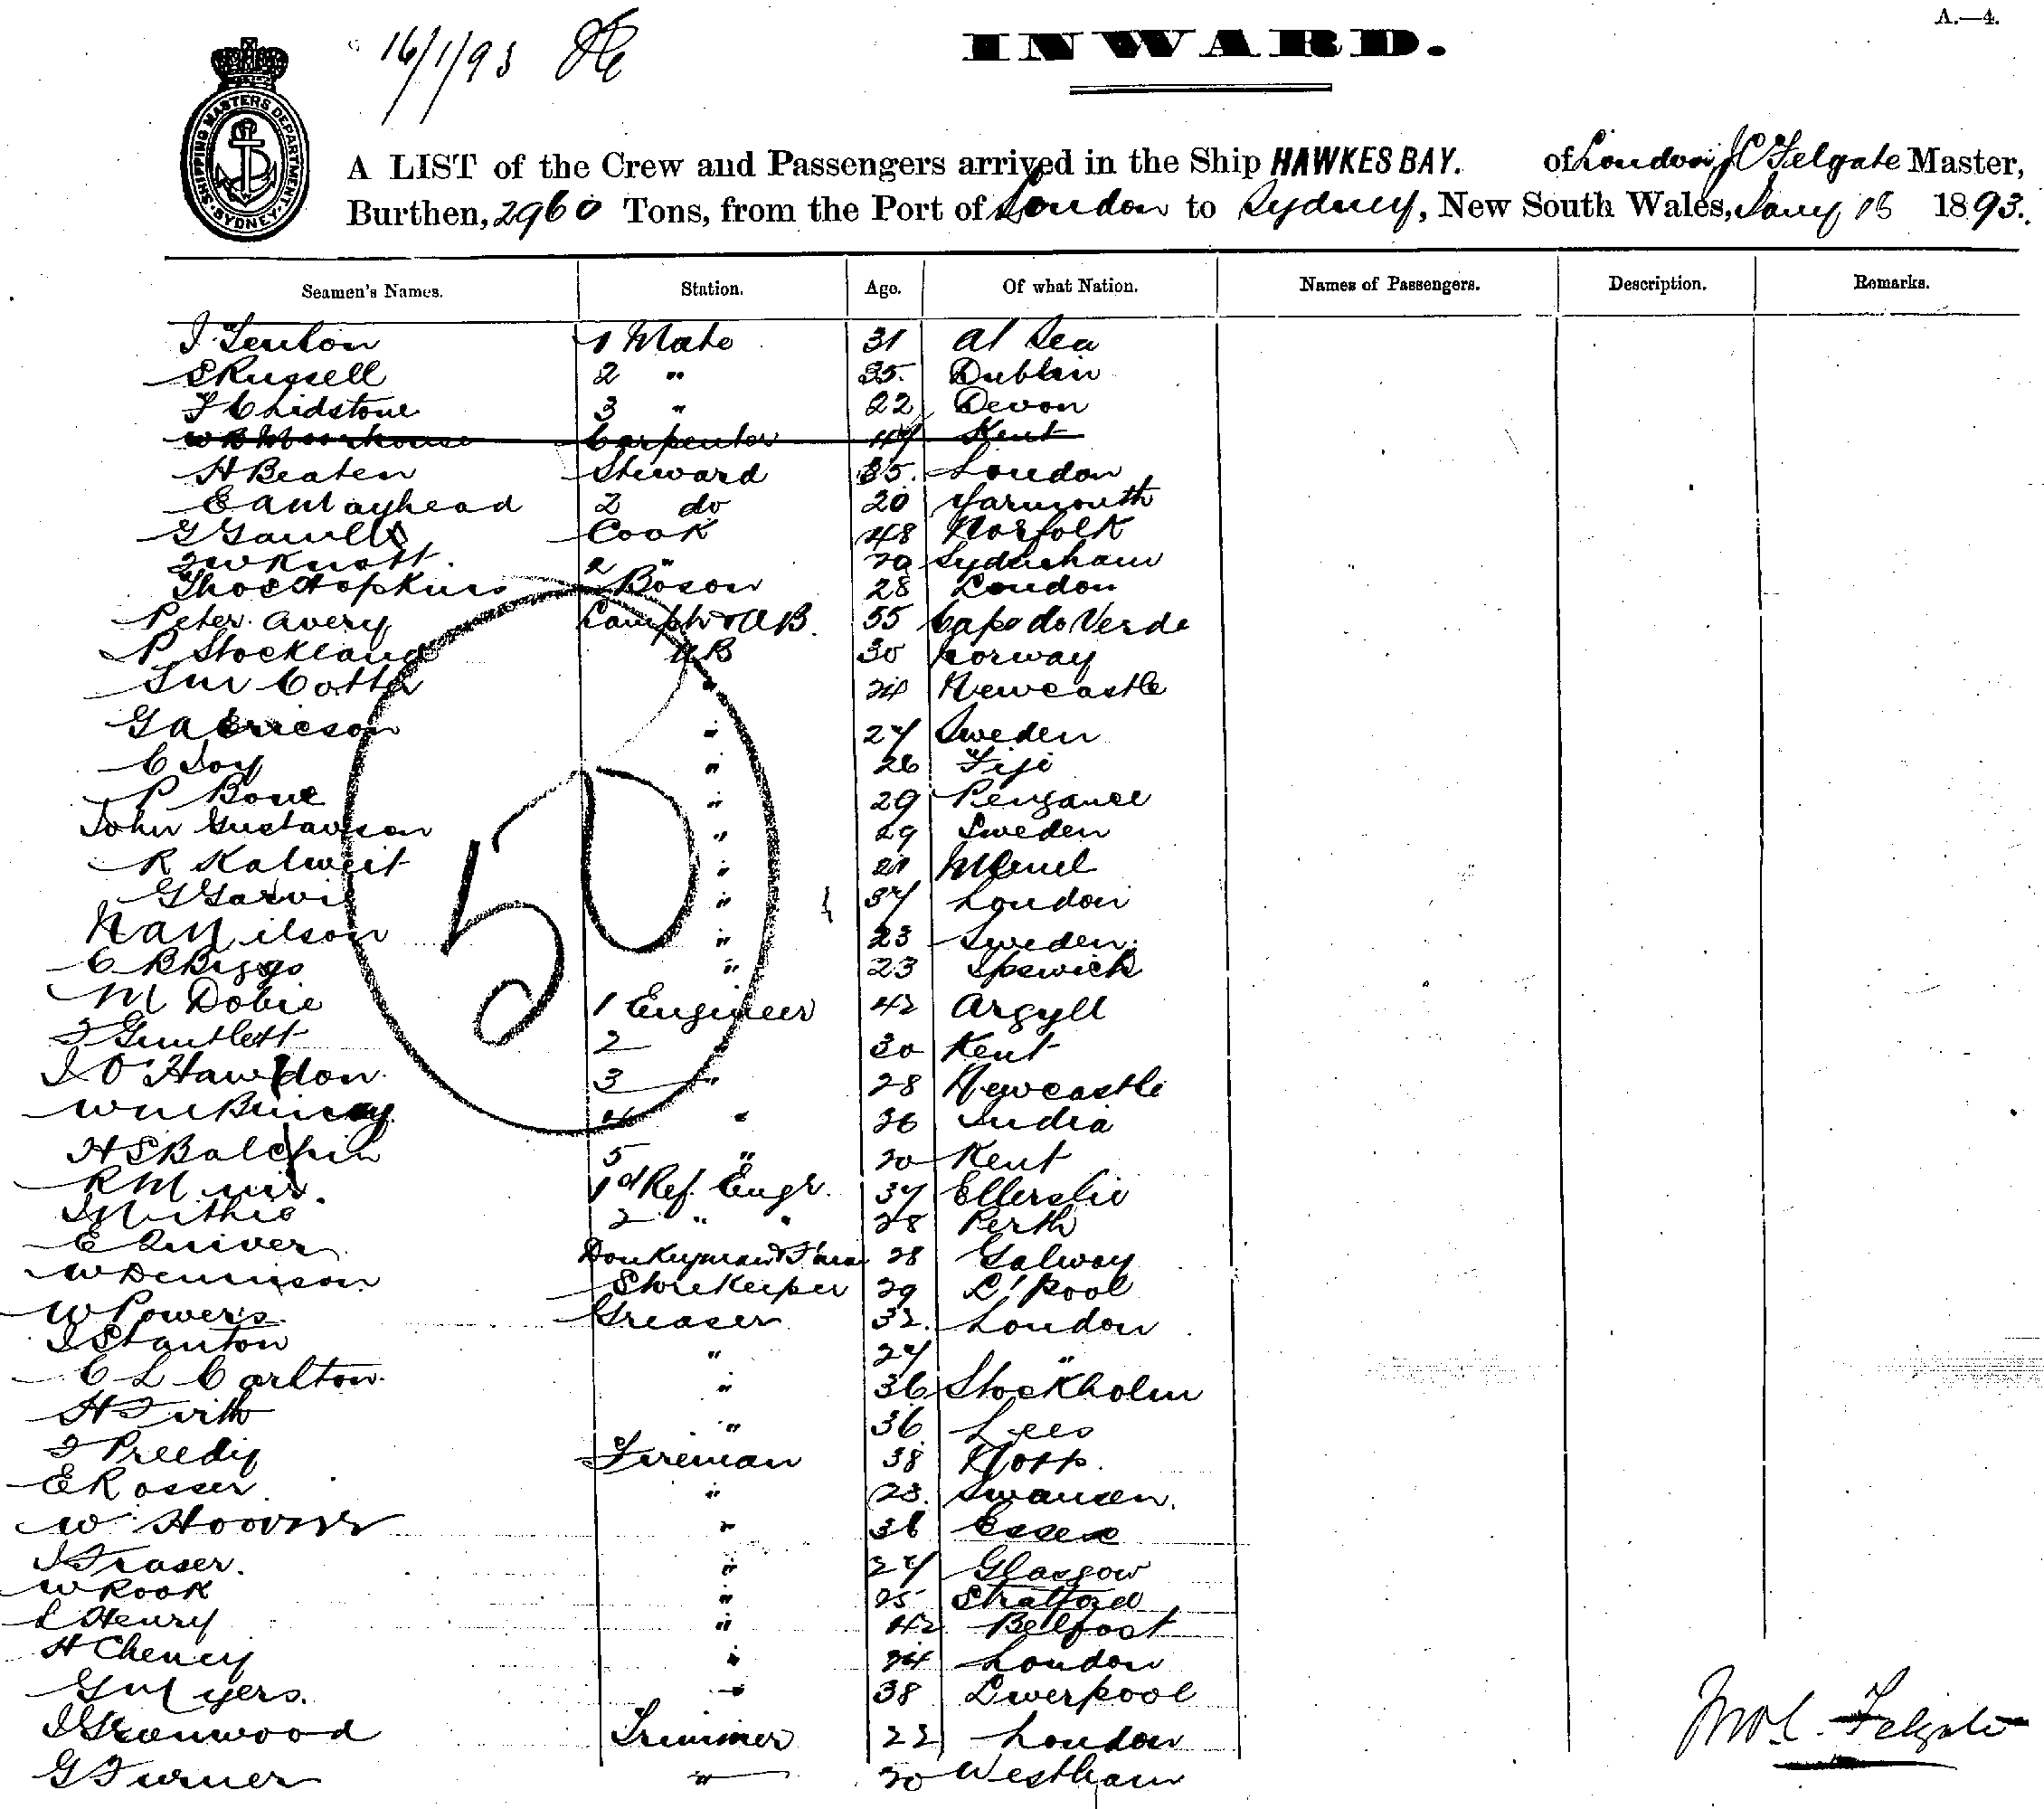 A.—4.
16/1/93
INWARD.
SHIPPING MASTERS DEPARTMENT. SYDNEY.
A LIST of the Crew and Passengers arrived in the Ship HAWKES BAY. of London, J C Felgate Master,
Burthen, 2960 Tons, from the Port of London to Sydney, New South Wales, Jany 16 1893.
Seamen's Names. Station. Age. Of what Nation. Names of Passengers. Description. Remarks.
J. Fenton 1 Mate 31 At Sea
S Russell 2 " 35. Dublin
F Chidstone 3 " 22 Devon
W B Moorhouse Carpenter 47 Kent
H Beaten Steward 35. London
E A Mayhead 2 do 20 Yarmouth
G Cook 48 Norfolk
W Knott. 2 " 20 Sydenham
Thos Hopkins Boson 28 London
Peter Avery Lamps & AB. 55 Cape de Verde
P Stockland AB 30 Norway
Cotter " 24 Newcastle
G A Ericson " 27 Sweden
C Joy " 26 Fiji
P Bone " 29 Penzance
John Gustavson " 29 Sweden
R Kalweit " 21 Memel
G Garvie " 37 London
N A Nilson " 23 Sweden.
C R Biggs " 23 Ipswich
M Dobie 1 Engineer 42 Argyll
J Guntlett 2 " 30 Kent
J O Hawdon. 3 " 28 Newcastle
4 " 26 India
H S Balchin 5 " 20 Kent
R Muir. 1st Ref. Engr. 37 Ellerslie
J Mithie 2 " " 28 Perth
E Quiver Donkeyman & F'man 28 Galway
W Dennison Storekeeper 29 L'Pool
W Powers. Greaser 32. London
J Stanton " 27 "
C L Carlton. " 36 Stockholm
H Firth " 36 Lees
J Preedy Fireman 38 Notts.
E Rosser " 23. Swansea.
W Hoover " 36 Essex
J Fraser. " 27 Glasgow
W Rook " 25 Stratford
L Henry " 42 Belfast
H Cheney " 24 London
G Myers. " 38 Liverpool
J Greenwood Trimmer 22 London
G Turner " 20 Westham
50
Jno. C. Felgate